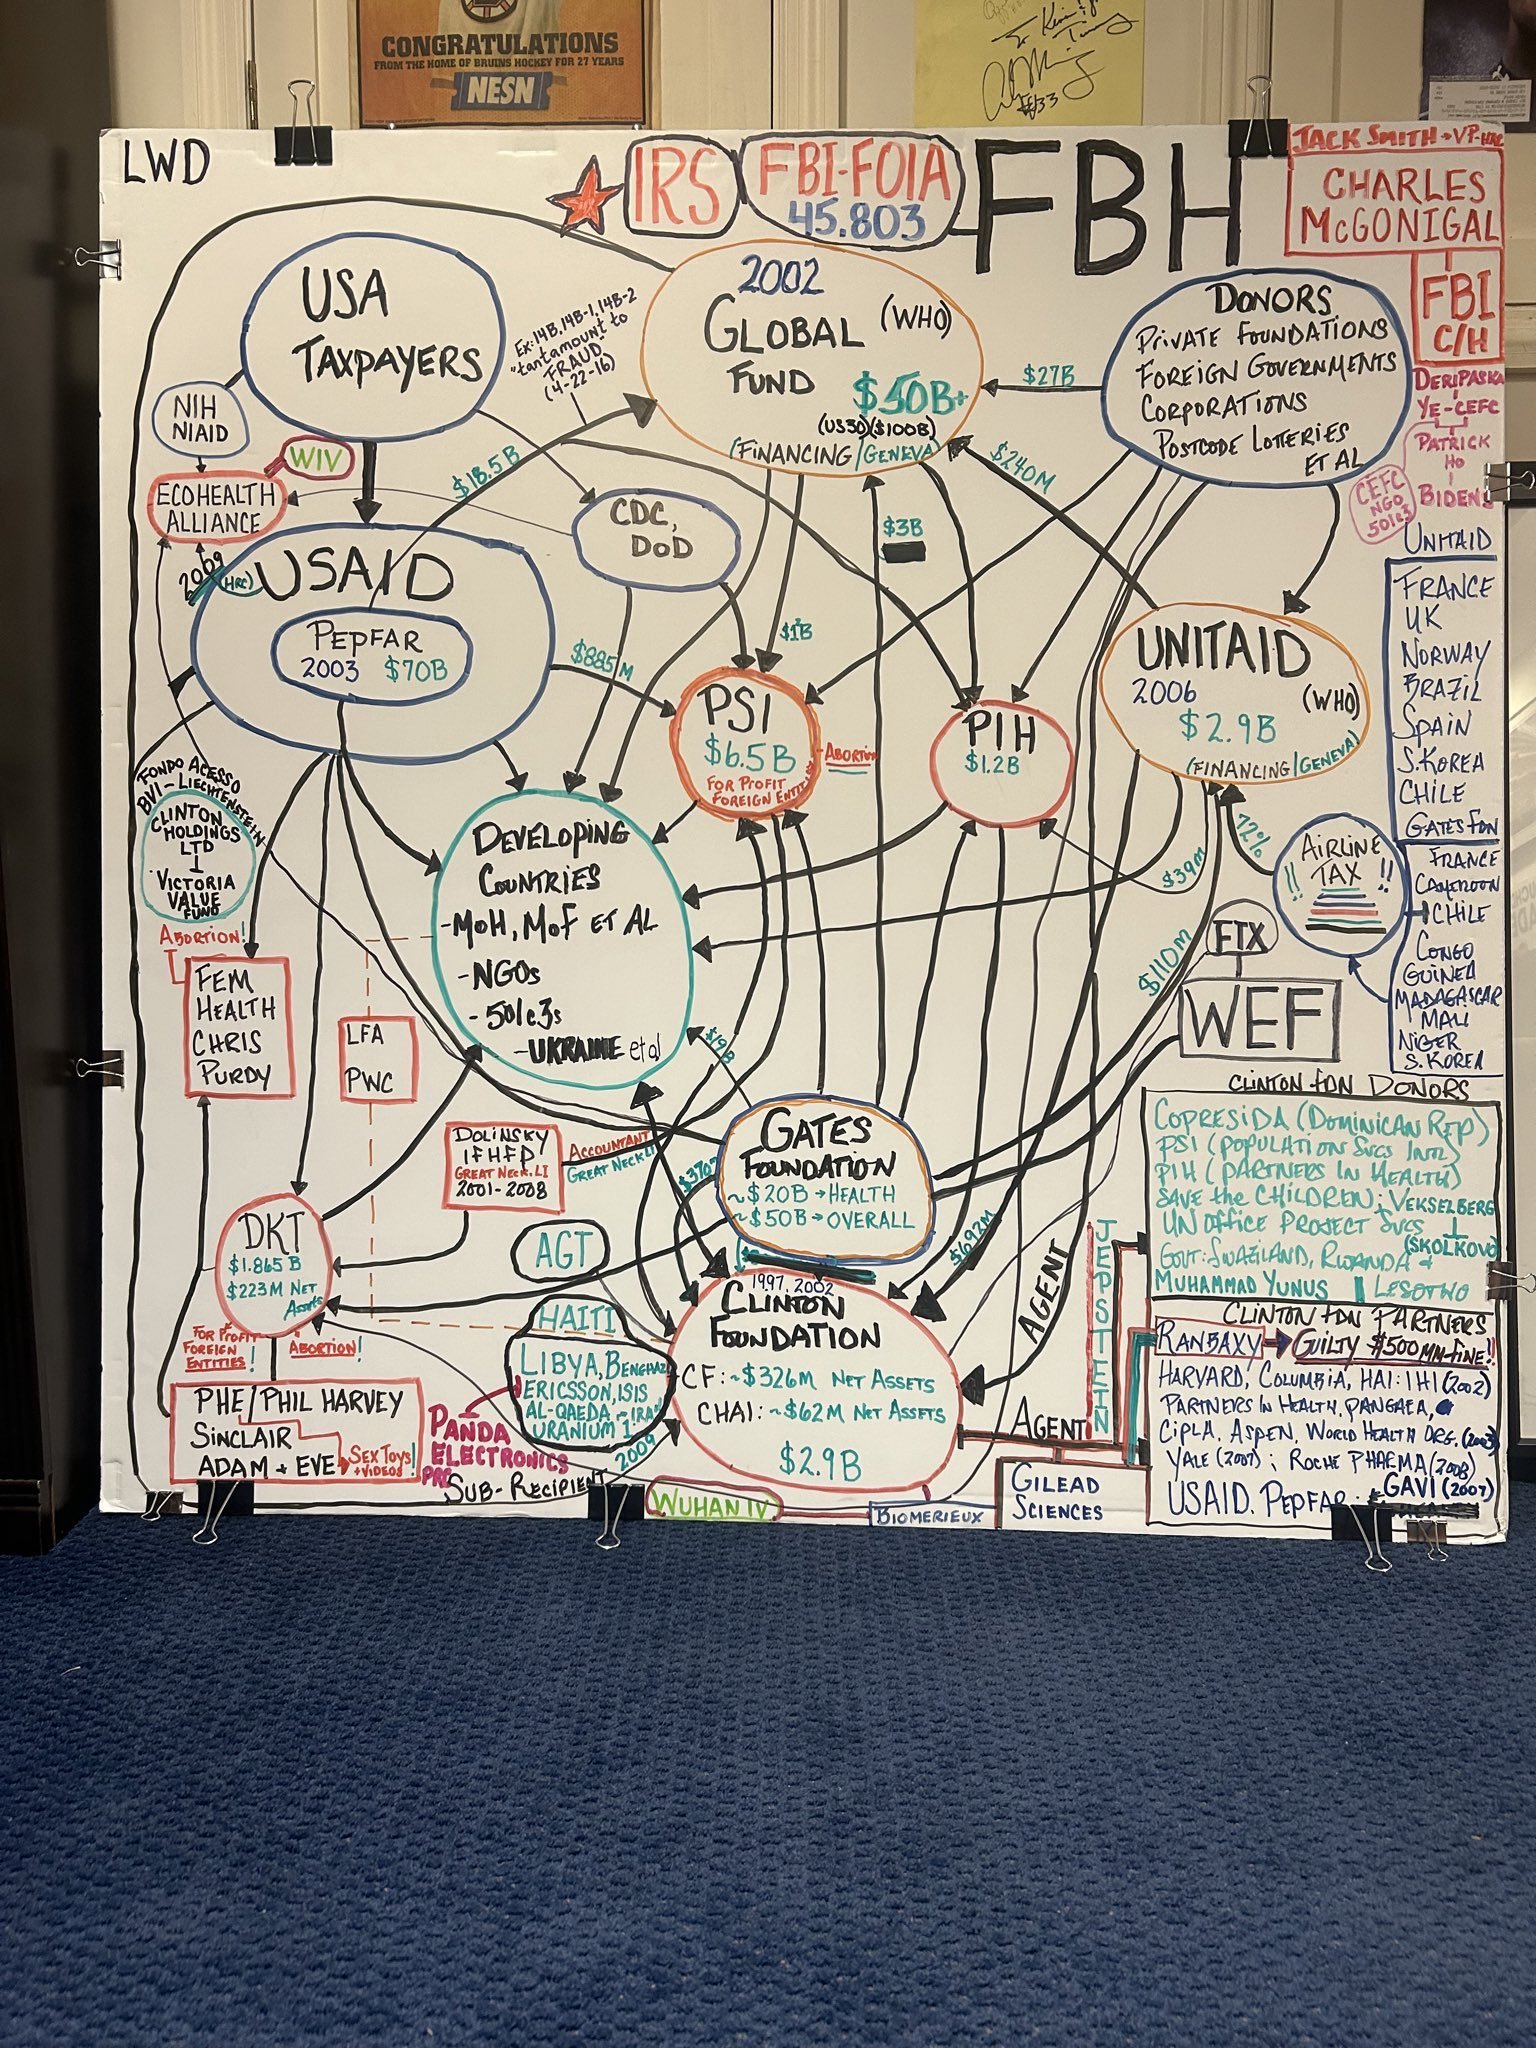 CONGRATULATIONS
FROM THE HOME OF BRUINS HOCKEY FOR 27 YEARS
NESN
To Kevin
#33
LWD
IRS
FBI-FOIA
45.803
FBH
JACK SMITH → VP-HAG
CHARLES
McGONIGAL
FBI
C/H
DERIPASKA
YE-CEFC
PATRICK
HO
BIDENS
CEFC
NGO
501c3
USA
TAXPAYERS
Ex: 14B, 14B-1, 14B-2
"tantamount to
FRAUD"
(4-22-16)
2002
GLOBAL (WHO)
FUND
$50B+
(US30)($100B)
(FINANCING/GENEVA)
DONORS
PRIVATE FOUNDATIONS
FOREIGN GOVERNMENTS
CORPORATIONS
POSTCODE LOTTERIES
ET AL
$27B
$240M
$18.5B
$3B
NIH
NIAID
WIV
ECOHEALTH
ALLIANCE
CDC,
DOD
2009
(HRC)
USAID
PEPFAR
2003 $70B
$885M
$1B
PSI
$6.5B
FOR PROFIT
FOREIGN ENTITIES
-ABORTION
PIH
$1.2B
UNITAID
2006 (WHO)
$2.9B
(FINANCING/GENEVA)
UNITAID
FRANCE
UK
NORWAY
BRAZIL
SPAIN
S.KOREA
CHILE
GATES FDN
FRANCE
CAMEROON
CHILE
CONGO
GUINEA
MADAGASCAR
MALI
NIGER
S. KOREA
72%
AIRLINE
!! TAX !!
$39M
$110M
FTX
WEF
FONDO ACESSO
BVI-LIECHTENSTEIN
CLINTON
HOLDINGS
LTD
VICTORIA
VALUE
FUND
ABORTION!
FEM
HEALTH
CHRIS
PURDY
DEVELOPING
COUNTRIES
-MOH, MOF ET AL
-NGOs
-501c3s
-UKRAINE et al
LFA
PWC
$19B
DOLINSKY
IFHFP
GREAT NECK. LI
2001-2008
ACCOUNTANT
GREAT NECK LI
GATES
FOUNDATION
~$20B → HEALTH
~$50B → OVERALL
$692M
DKT
$1.865B
$223M NET
ASSETS
FOR PROFIT
FOREIGN
ENTITIES!
ABORTION!
PHE/PHIL HARVEY
SINCLAIR
ADAM + EVE
SEX TOYS!
+VIDEOS
AGT
HAITI
LIBYA, BENGHAZI
ERICSSON, ISIS
AL-QAEDA, - IRAN
URANIUM 1
PANDA
ELECTRONICS
PRC
SUB-RECIPIENT
2009
1997, 2002
CLINTON
FOUNDATION
CF: ~$326M NET ASSETS
CHAI: ~$62M NET ASSETS
$2.9B
AGENT
AGENT
JEPSTEIN
WUHAN IV
BIOMERIEUX
GILEAD
SCIENCES
CLINTON FDN DONORS
COPRESIDA (DOMINICAN REP)
PSI (POPULATION SVCS INTL)
PIH (PARTNERS IN HEALTH)
SAVE the CHILDREN; VEKSELBERG
UN OFFICE PROJECT SVCS
(SKOLKOVO)
GOVT: SWAZILAND, RWANDA &
MUHAMMAD YUNUS LESOTHO
CLINTON FDN PARTNERS
RANBAXY → GUILTY $500MM-FINE!!
HARVARD, COLUMBIA, HAI: IHI (2002)
PARTNERS IN HEALTH, PANGAEA,
CIPLA, ASPEN, WORLD HEALTH ORG. (2003)
YALE (2007); ROCHE PHARMA (2008)
USAID. PEPFAR. GAVI (2007)